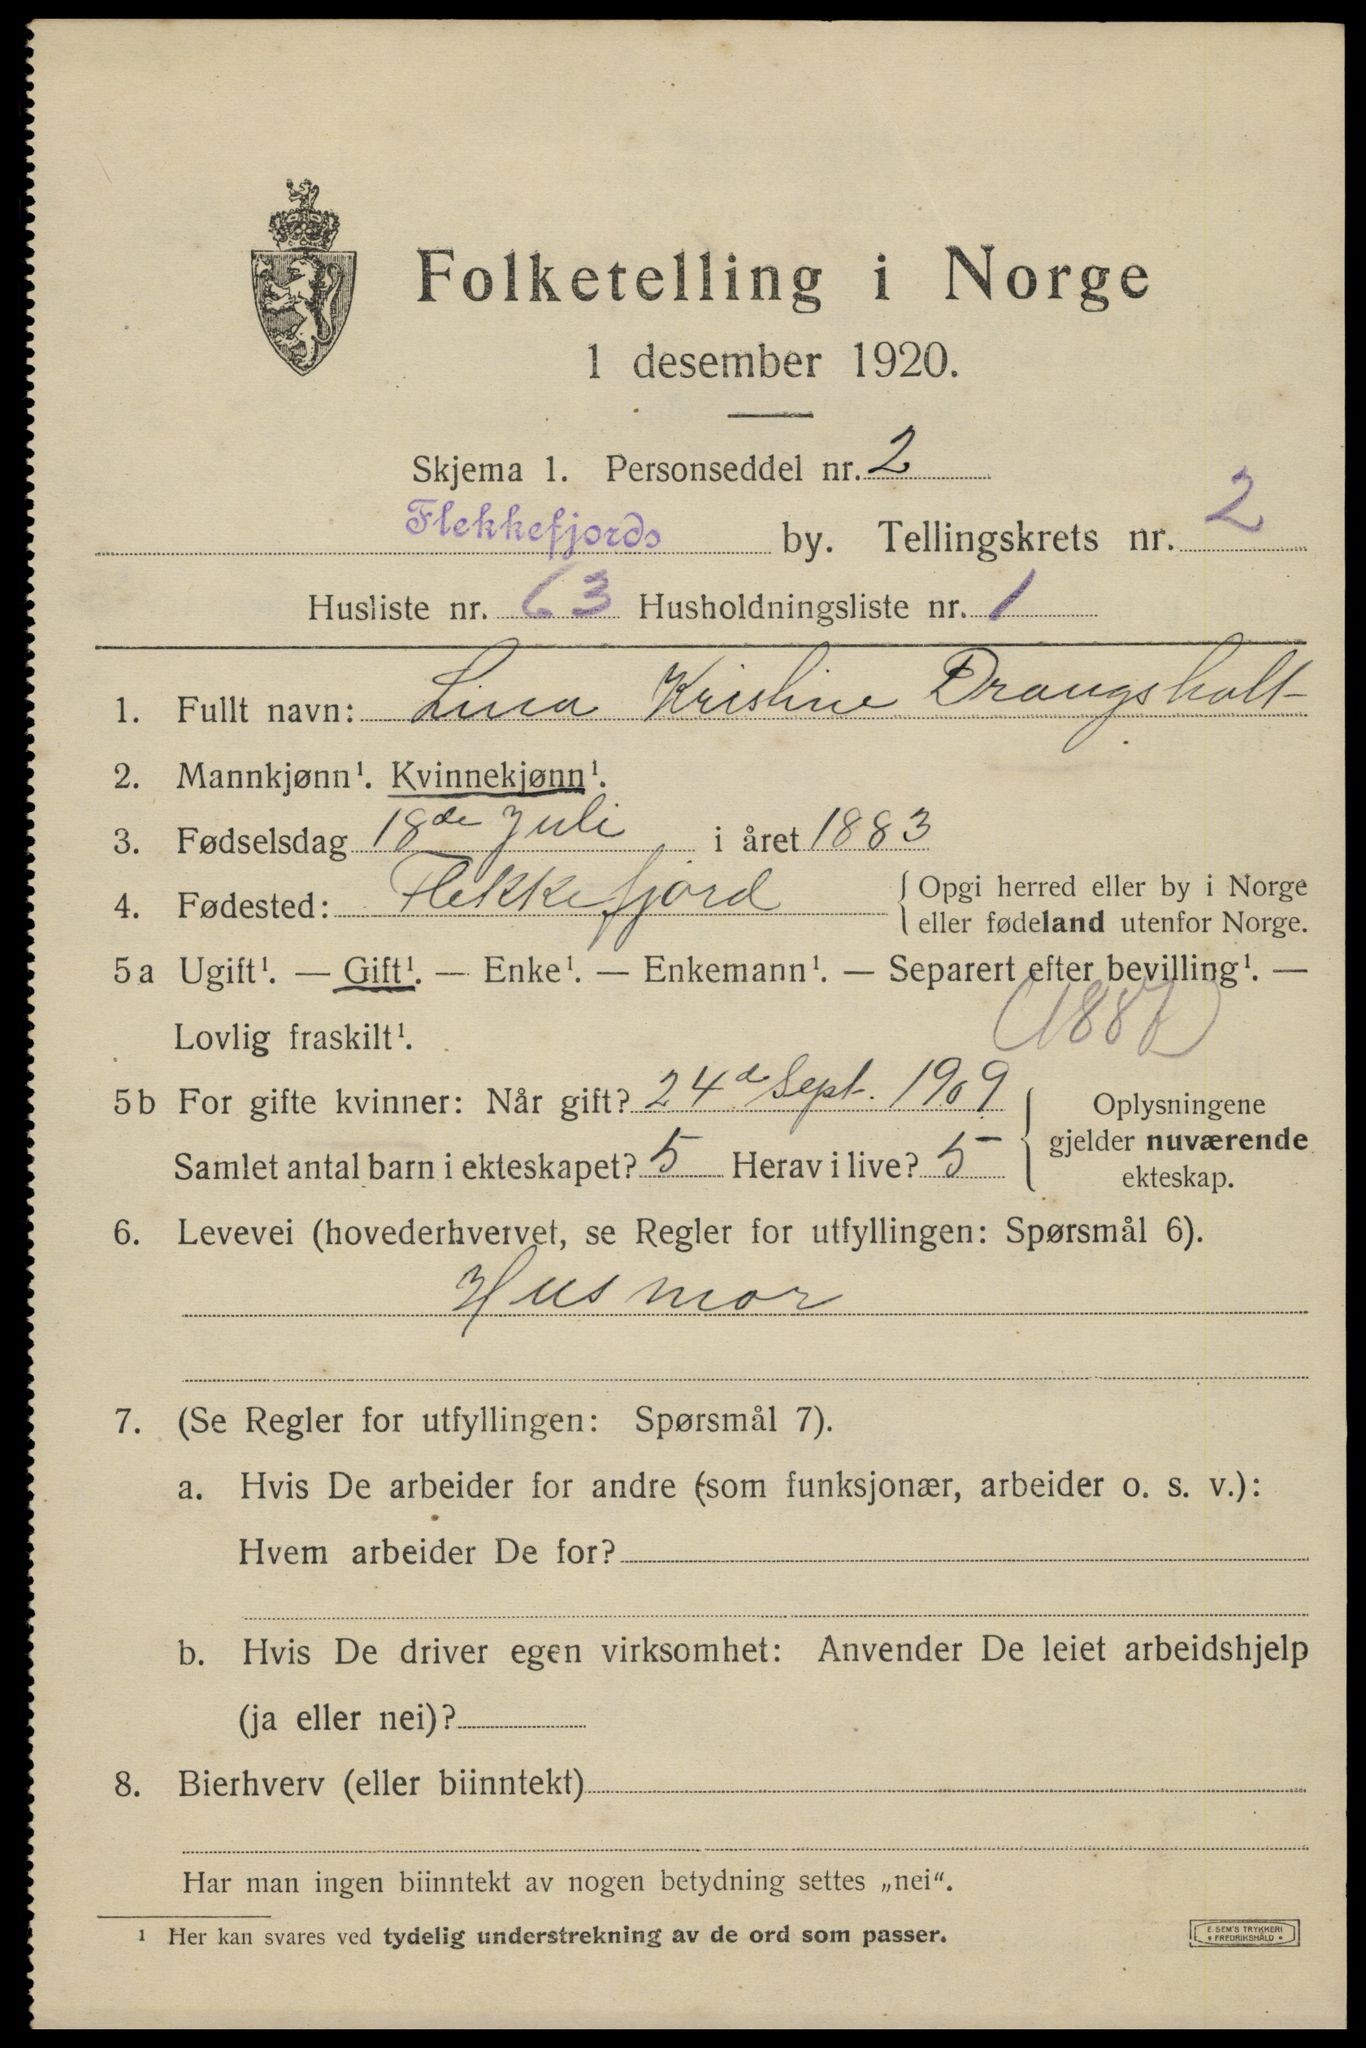 Folketelling i Norge
1 desember 1920.
Skjema 1. Personseddel nr. 2
Flekkefjords by. Tellingskrets nr. 2
Husliste nr. 63 Husholdningsliste nr. 1
1. Fullt navn: Lina Kristine Drangsholt
2. Mannkjønn¹. Kvinnekjønn¹.
3. Fødselsdag 18de Juli i året 1883
4. Fødested: Flekkefjord { Opgi herred eller by i Norge
eller fødeland utenfor Norge.
5a Ugift¹. — Gift¹. — Enke¹. — Enkemann¹. — Separert efter bevilling¹. —
Lovlig fraskilt¹.
5b For gifte kvinner: Når gift? 24de Sept. 1909
Samlet antal barn i ekteskapet? 5 Herav i live? 5
Oplysningene
gjelder nuværende
ekteskap.
6. Levevei (hovederhvervet, se Regler for utfyllingen: Spørsmål 6).
Husmor
7. (Se Regler for utfyllingen: Spørsmål 7).
a. Hvis De arbeider for andre (som funksjonær, arbeider o. s. v.):
Hvem arbeider De for?
b. Hvis De driver egen virksomhet: Anvender De leiet arbeidshjelp
(ja eller nei)?
8. Bierhverv (eller biinntekt)
Har man ingen biinntekt av nogen betydning settes „nei“.
¹ Her kan svares ved tydelig understrekning av de ord som passer.
E. SEM'S TRYKKERI
FREDRIKSHALD